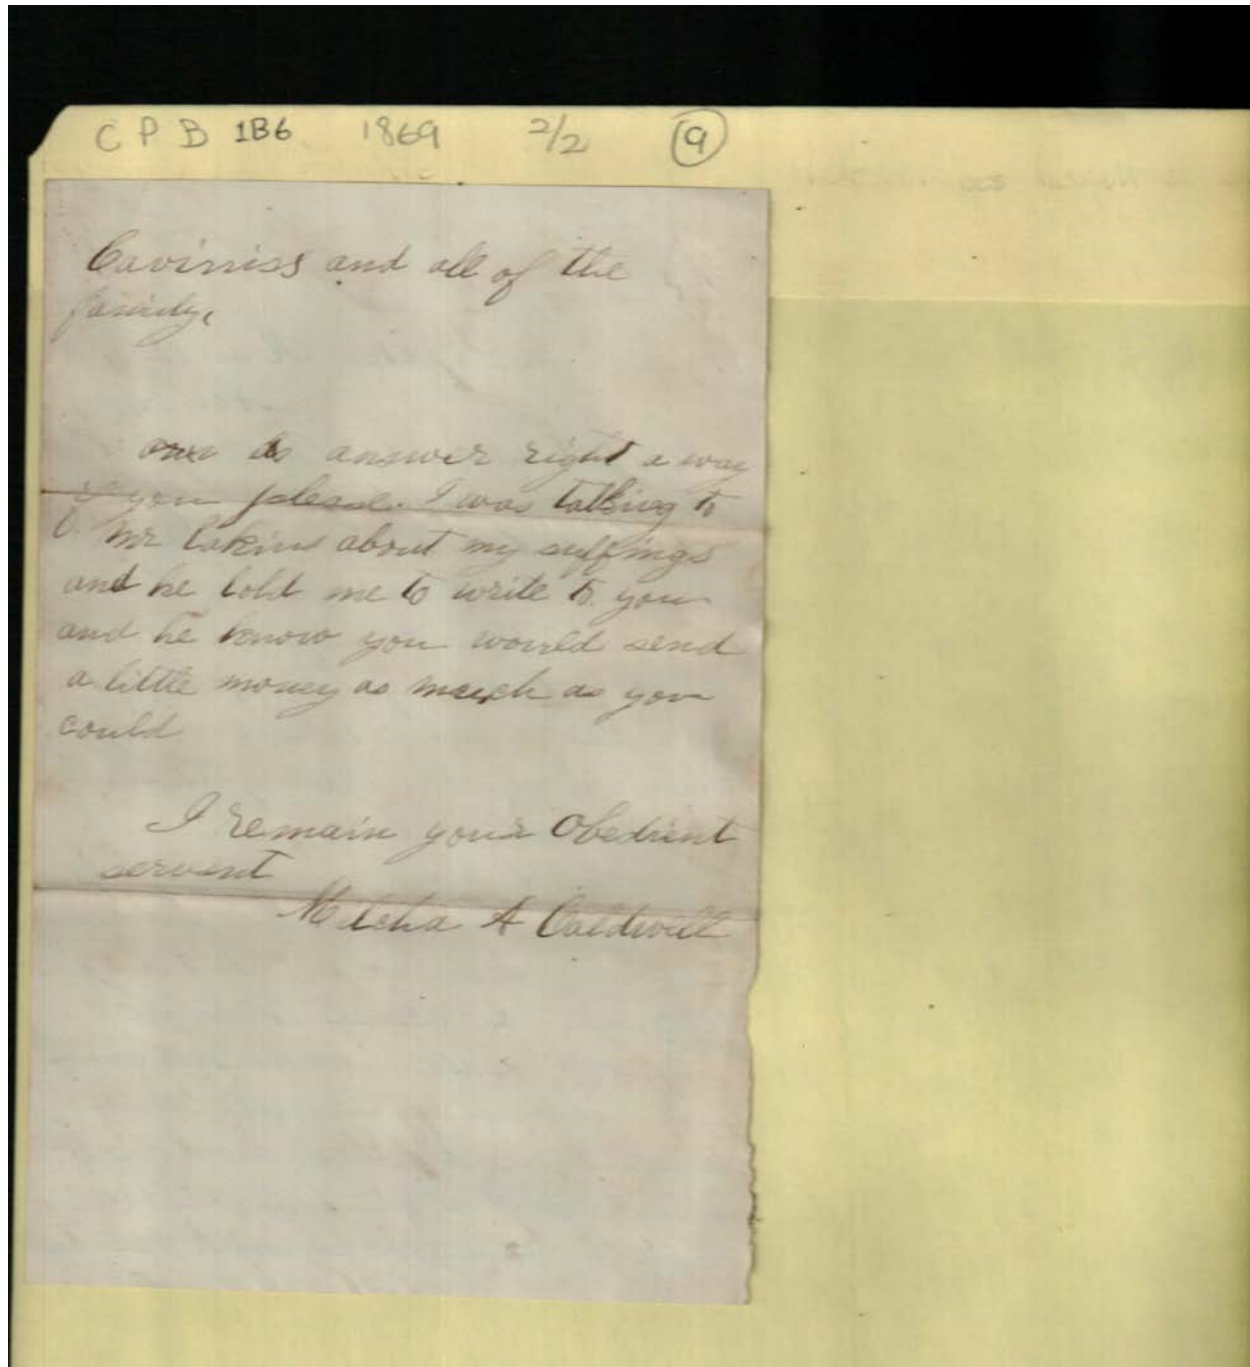 C P B 1B6 1869 2/2 9
Caviniss and all of the
family,
do answer right a way
if you please. I was talking to
Mr Lakins about my suffings
and he told me to write to you
and he know you would send
a little money as much as you
could
I remain your Obedient
servent
A Caldwell